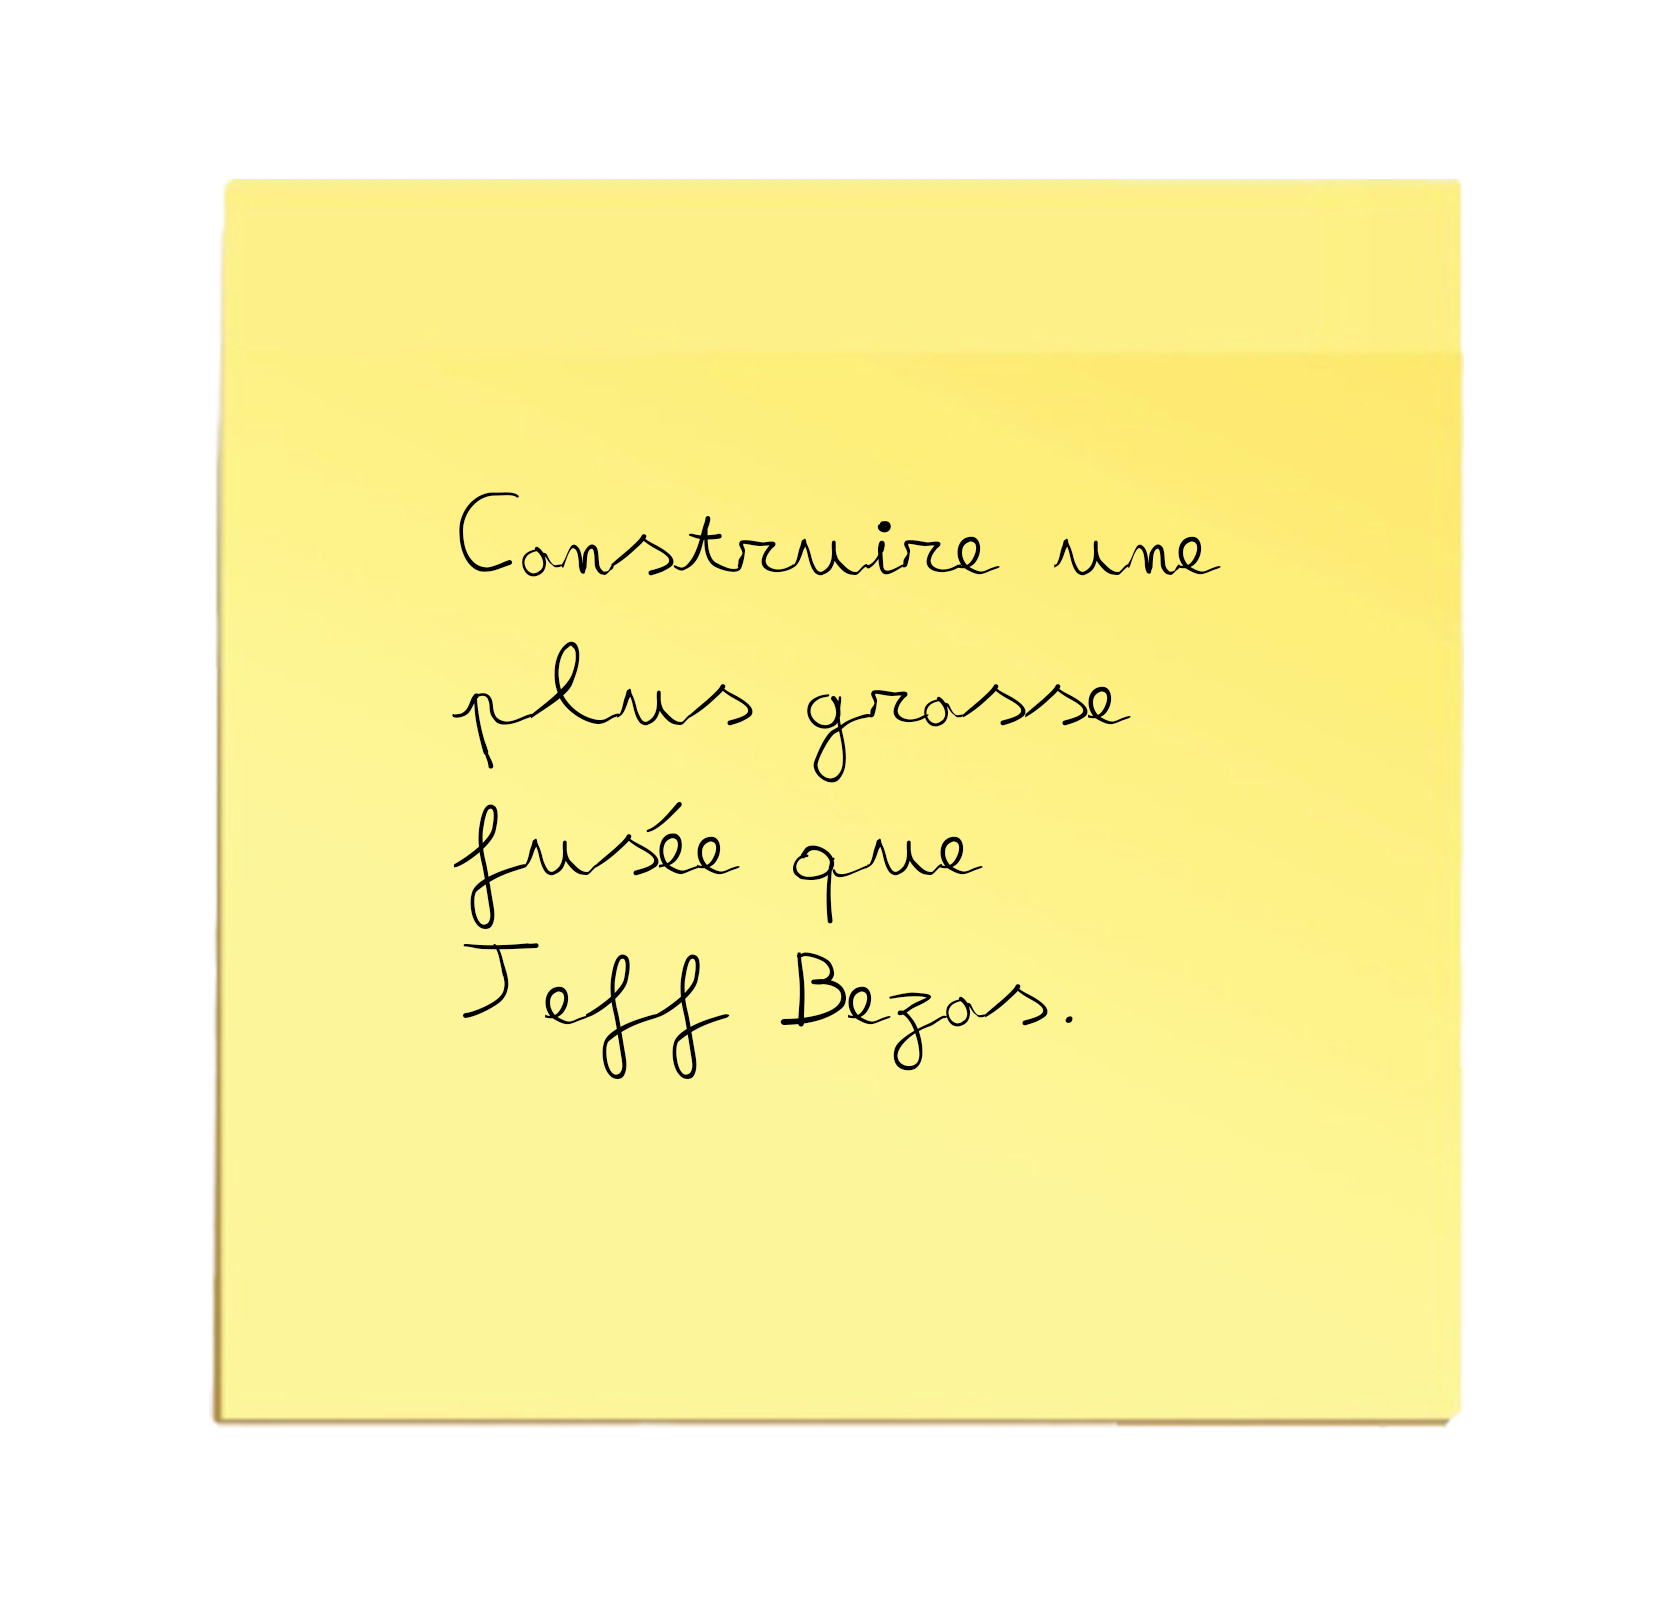 Construire une
plus grosse
fusée que
Jeff Bezos.